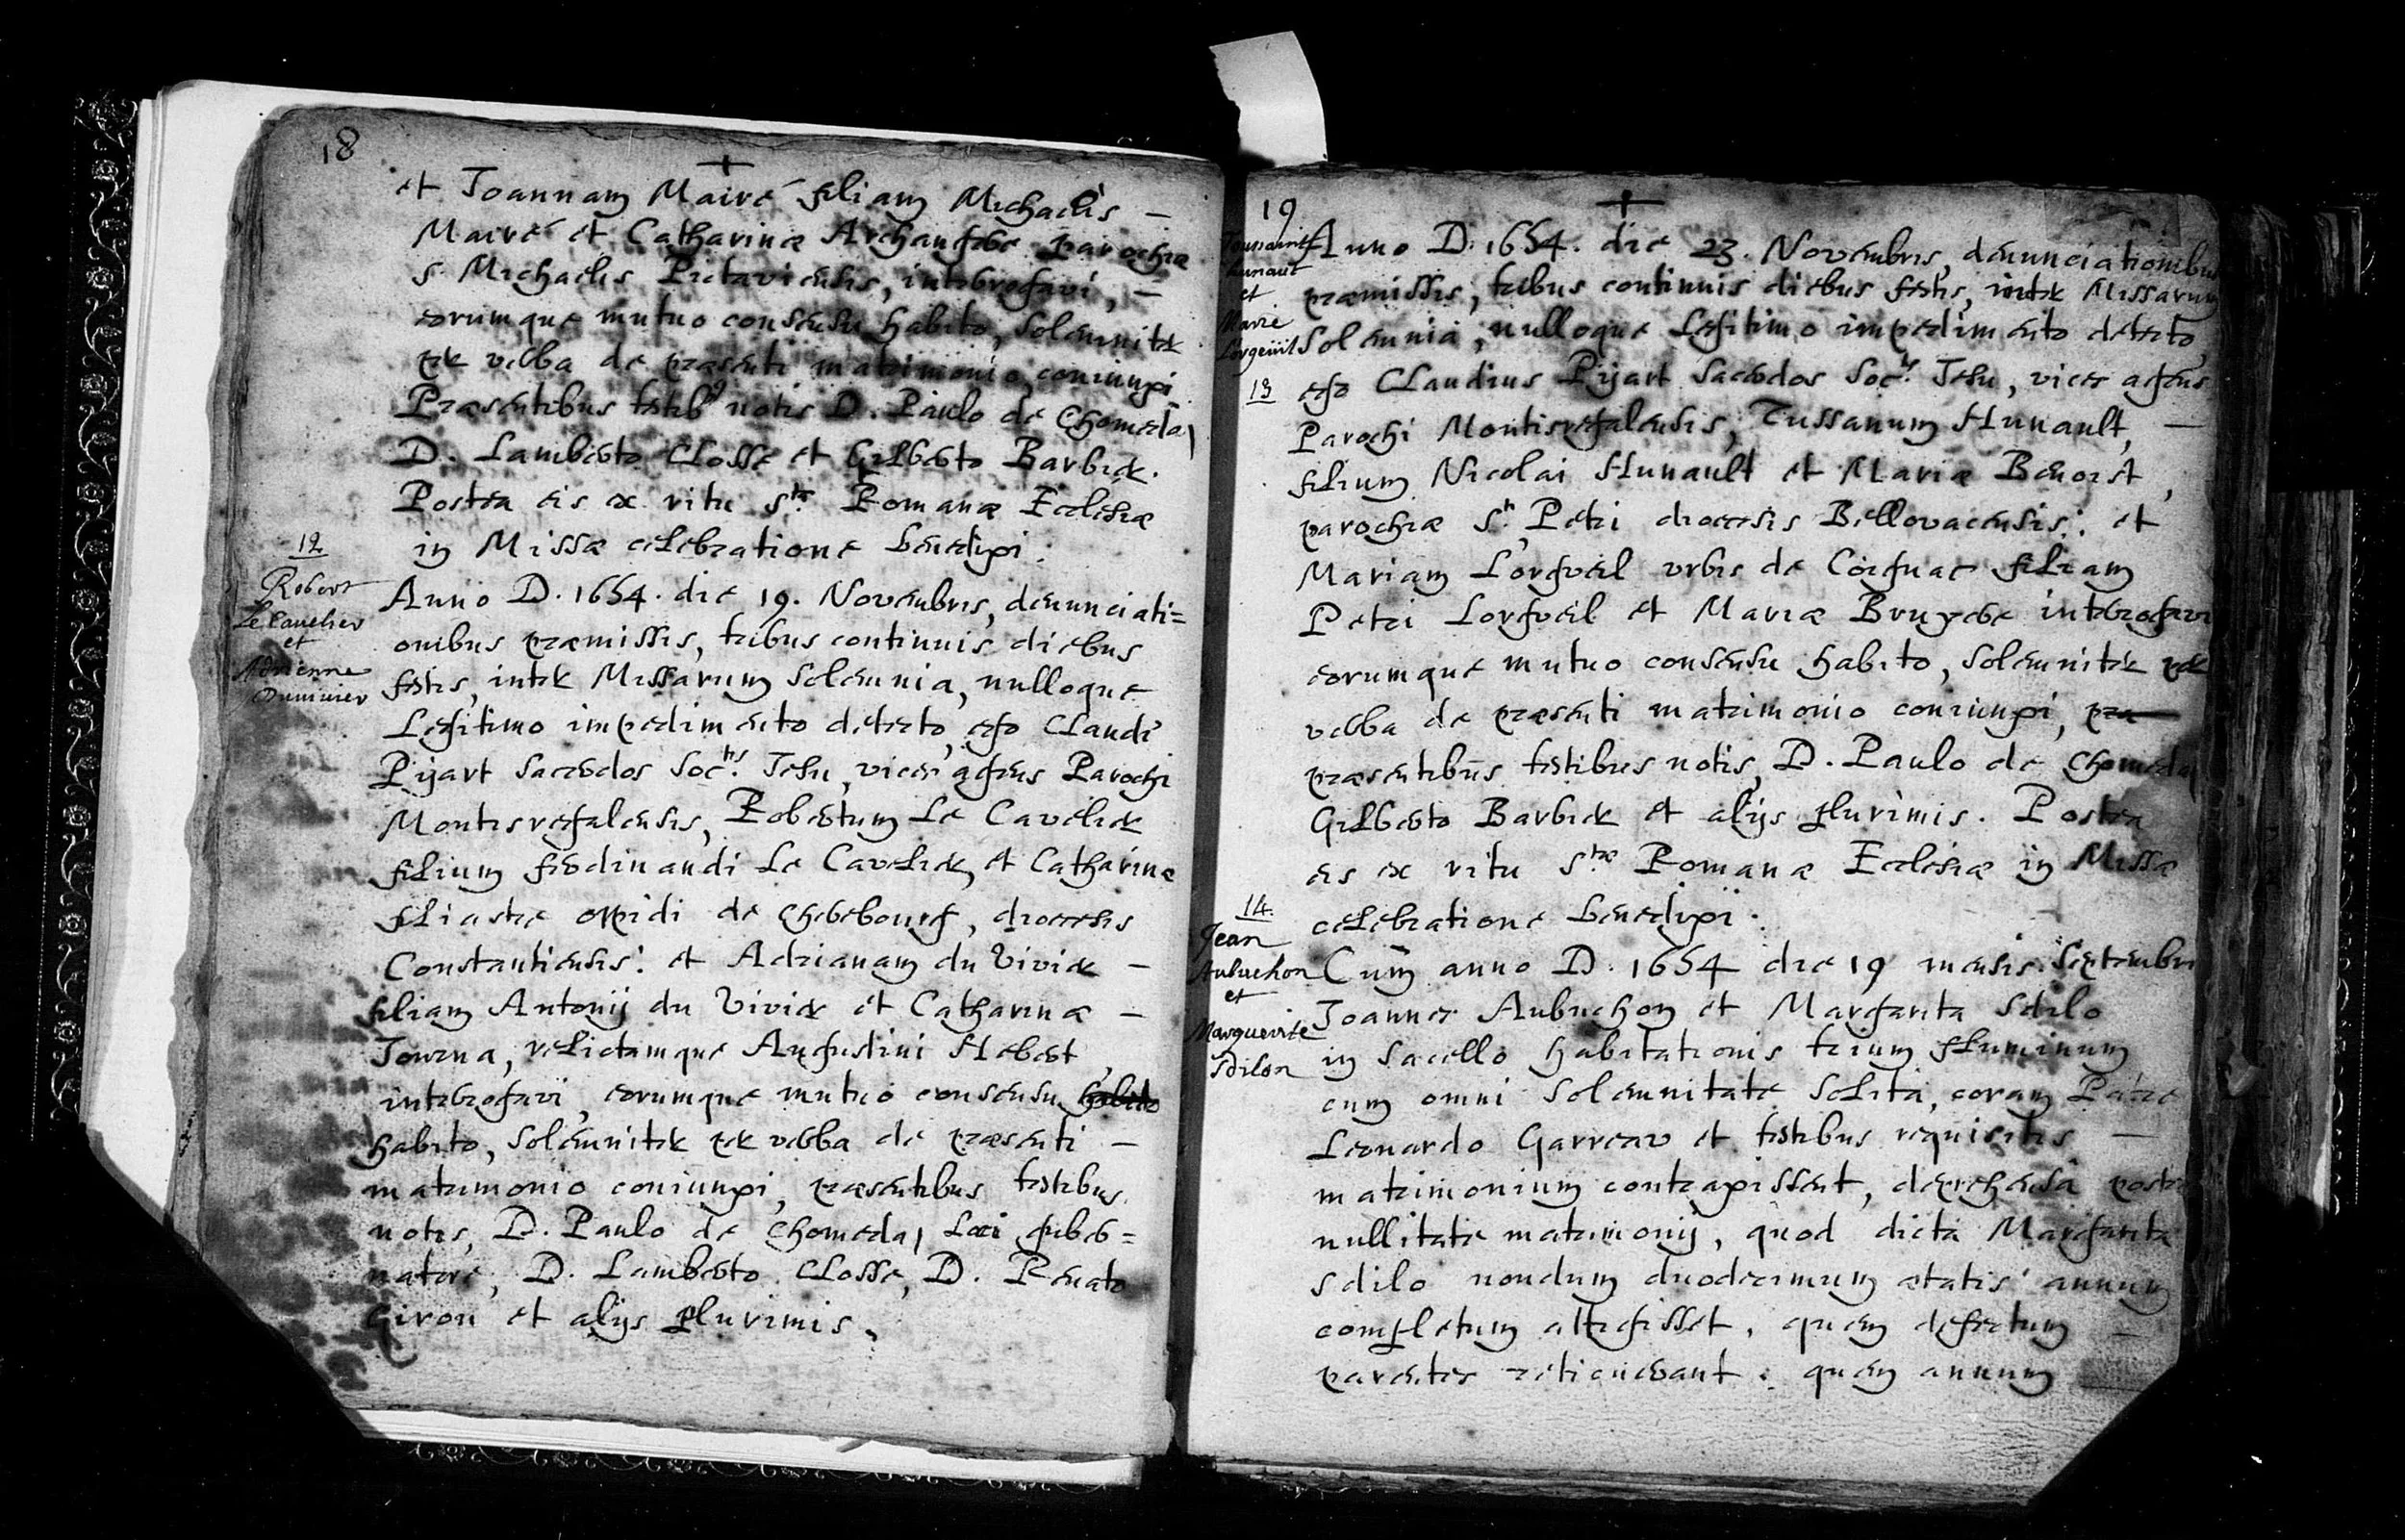 18
+
et Joannam Mairé filiam Michaelis —
Mairé et Catharinæ Archangere parochiæ
S. Michaelis Pictaviensis, interrogavi, —
eorumque mutuo consensu habito, solemniter
per verba de præsenti matrimonio coniunxi
Præsentibus testib9 notis D. Paulo de Chomeday
D. Lamberto Closse et Gilberto Barbier.
Postea eis ex ritu Stæ. Romanæ Ecclesiæ
in Missæ celebratione benedixi.
12
Robert
Le Cauelier
et
Adrienne
Duuiuier
Anno D. 1654. die 19. Novembris, denunciati=
onibus præmissis, tribus continuis diebus
festis, inter Missarum solemnia, nulloque
Legitimo impedimento detecto, ego Claudi9
Pijart Sacerdos Soctis. Jesu, vices agens Parochi
Montisregalensis, Robertum Le Cavelier
filium ferdinandi Le Cavelier, et Catharinæ
filiastre oppidi de Cherebourg, diocesis
Constantiensis: et Adrianam du Vivier —
filiam Antonij du Vivier et Catharinæ —
Journa, relictamque Augustini Hebert,
interrogavi, eorumque mutuo consensu habito
habito, solemniter per verba de præsenti —
matrimonio coniunxi, præsentibus testibus
notis, D. Paulo de Chomeday Loci guber=
natore, D. Lamberto Closse, D. Renato
Giron et alijs plurimis.
19
+
Toussaint
hunault
et
Marie
Lorgeuil
13
Anno D. 1654. die 23. Novembris, denunciationibus
præmissis, tribus continuis diebus festis, inter Missarum
Solemnia, nulloque Legitimo impedimento detecto,
ego Claudius Pijart Sacerdos Soctis. Jesu, vices agens
Parochi Montisregalensis, Tussanum Hunault, —
filium Nicolai Hunault et Mariæ Benoist,
parochiæ Sti. Petri diocesis Bellovacensis: et
Mariam Lorgveil urbis de Coignac filiam
Petri Lorgveil et Mariæ Bruyere interrogavi
eorumque mutuo consensu habito, solemniter per
verba de præsenti matrimonio coniunxi, præ
præsentibus testibus notis, D. Paulo de Chomeday
Gilberto Barbier et alijs plurimis. Postea
eis ex ritu Stæ Romanæ Ecclesiæ in Missæ
celebratione benedixi.
14.
Jean
Aubuchon
et
Marguerite
Sdilon
Cum anno D. 1654 die 19 mensis Septembris
Joannes Aubuchon et Margarita Sdilo
in Sacello habitationis trium fluminum
cum omni solemnitate solita, coram Patre
Leonardo Garreav et testibus requisitis —
matrimonium contraxissent, deprehensâ postea
nullitate matrimonij, quod dicta Margarita
Sdilo nondum duodecimum ætatis annum
completum attigisset, quem defectum —
parentes reticuerant: quem annum